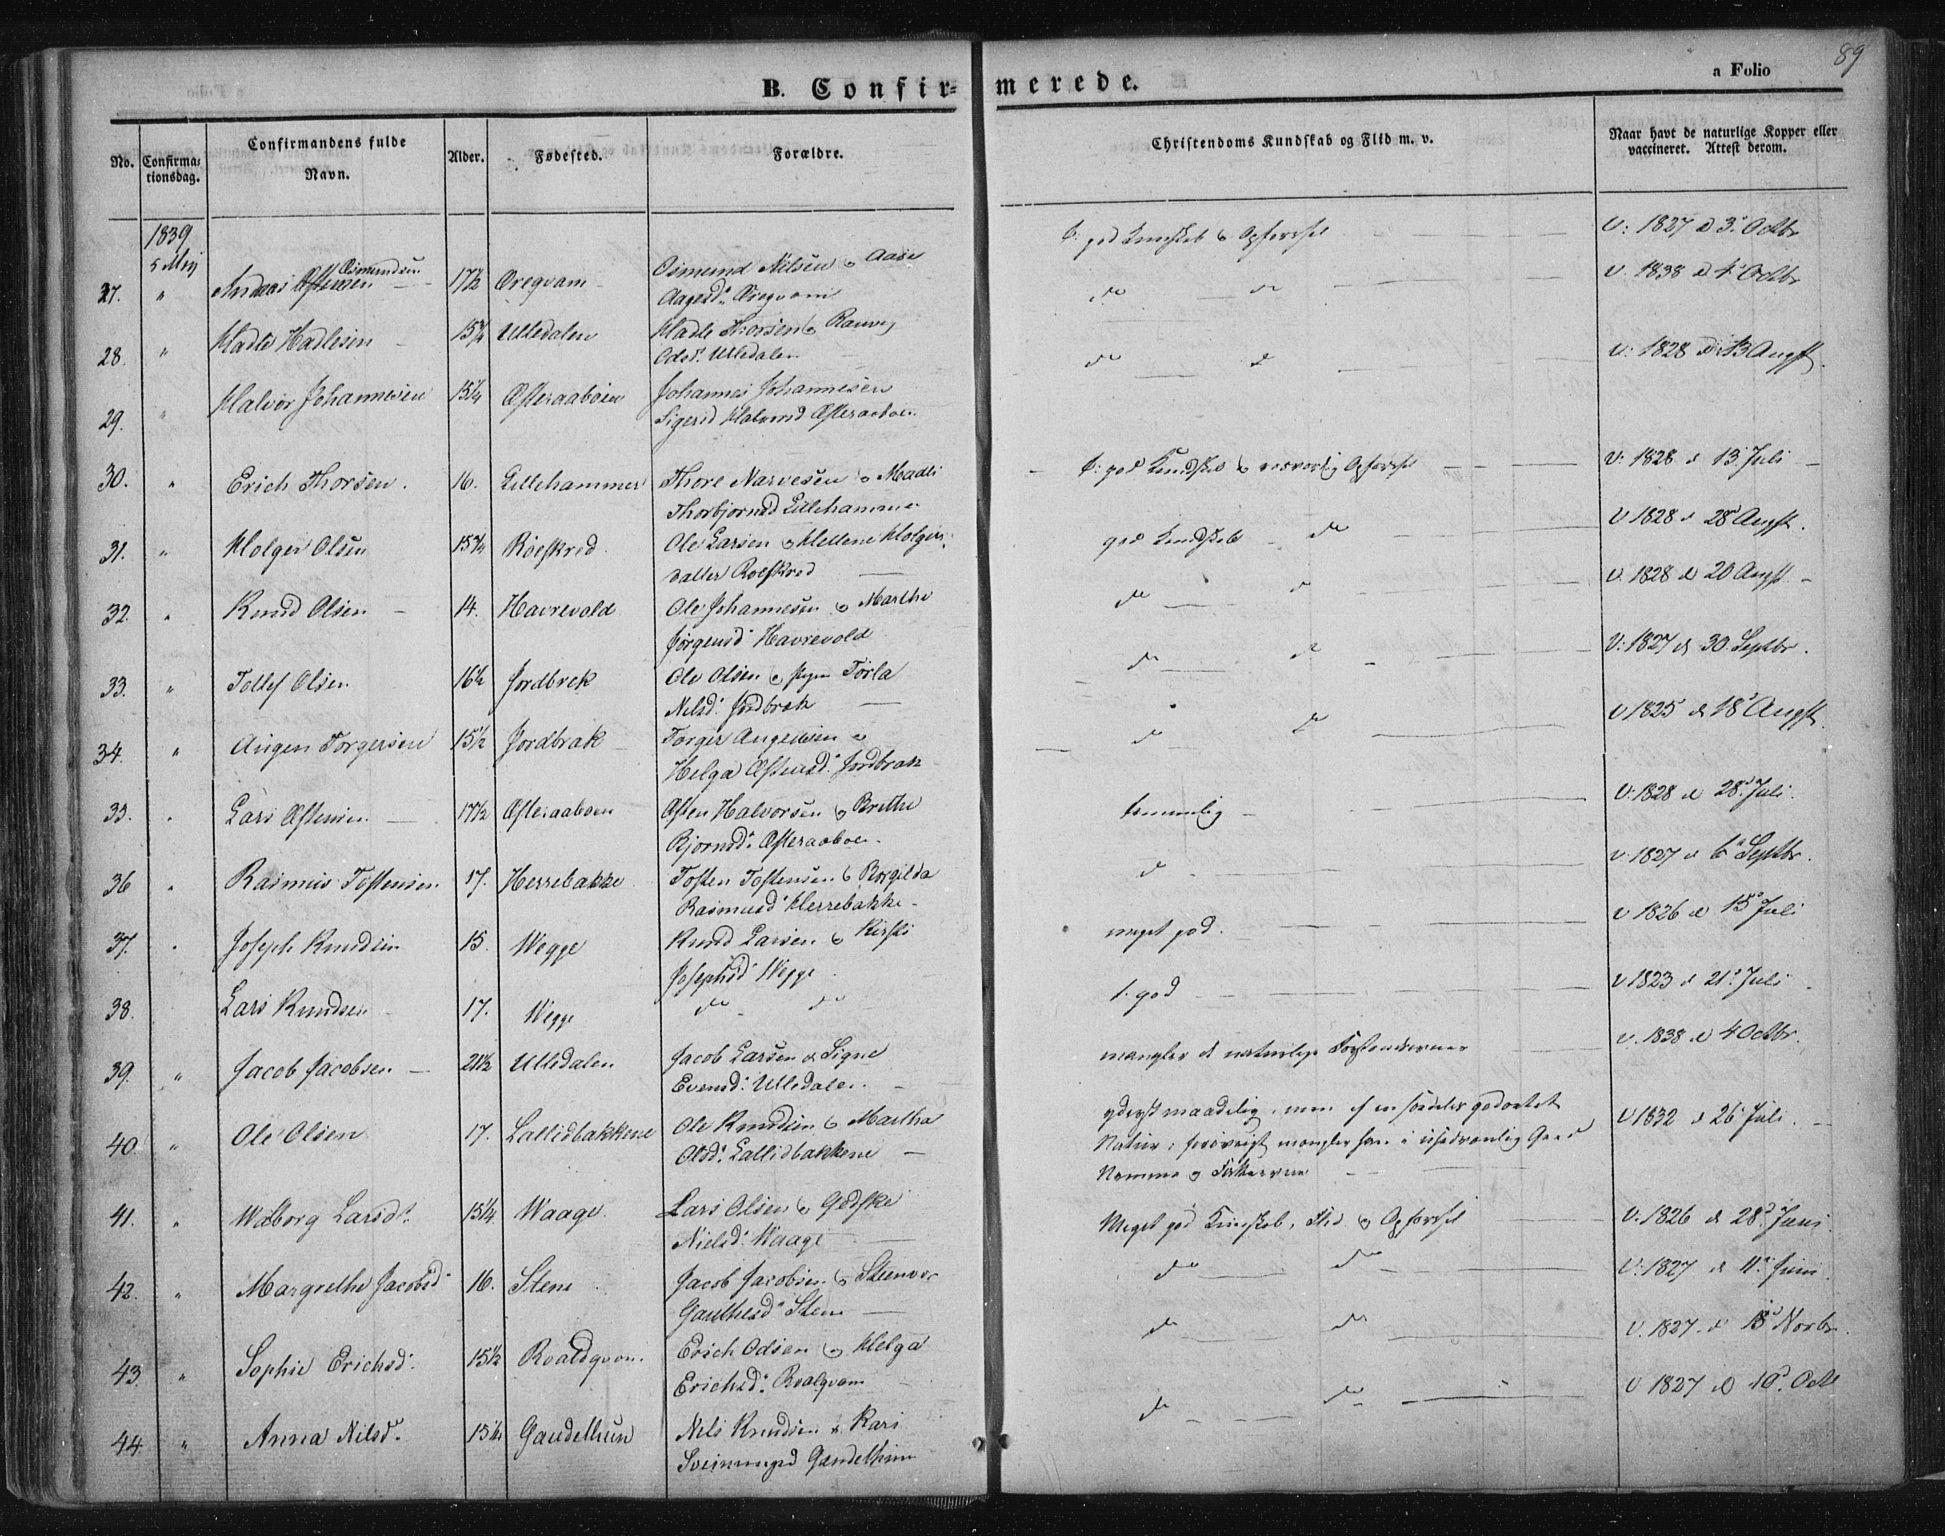 89
a Folio
B. Confir=merede.
No.
Confirma-
tionsdag.
Confirmandens fulde
Navn.
Alder.
Fødested.
Forældre.
Christendoms Kundskab og Flid m. v.
Naar havt de naturlige Kopper eller
vaccineret. Attest derom.
1839
5 Maj
t. god Kunskab & Opførsel V: 1827 d 3. Octbr
Osmundsen
27. " Andreas 17½ Øregvam Osmund Nilsen & Aase
Aagesd. Øregvam
do do V. 1838 d 4 Octbr
28. " Hadle Hadlesen 15¼ Ulledalen Hadle Thorsen & Ranvei
Odsd. Ulledalen
do d V: 1828 d 13 Augst.
29. " Halvor Johannesen 15¼ Østeraaboen Johannes Johannesen
Sigrid Halvorsd Østeraaboen
30. " Erich Thorsen. 16. Lillehammer Thore Narvesen & Madli
Thorbjornsd Lillehammer
t. god Kundskab & Opførsel V: 1828 d 13. Juli
31. " Holger Olsen 15¾ Røeskred Ole Larsen & Hellene Holgers
datter Roeskred
god Kundskab do V 1828 d 28 Augst.
32. " Knud Olsen 14. Havrevold Ole Johannesen & Marthe
Jørgensd. Havrevold
do d V. 1828 d 20 Augst.
33. " Tollef Olsen 16½ Jordbrek Ole Olsen & Torla
Nilsd. Jordbræk
do d V: 1827 d 30. Septbr.
34. " Augen Torgersen 15½ Jordbrak Torger Augensen &
Helga Østensd. Jordbrak
do d V 1825 d 18 Augst.
35. " Lars Østensen 17½ Østeraaboen Østen Halvorsen & Brithe
Bjornsd. Østeraaboe.
temmelig V: 1828 d 28. Juli.
36 " Rasmus Tostensen 17. Herrebakke Tosten Tostensen & Borgilda
Rasmusd Herrebakke
d V 1827 d 6 Septbr.
37. " Joseph Knudsen 15. Wegge Knud Larsen & Kirsti
Josephsd Wegge
meget god. V 1826 d 15 Juli
38. Lars Knudsen 17. Wegge do do
t. god V 1823 d 21. Juli
39. " Jacob Jacobsen 21½ Ulledalen Jacob Larsen & Signe
Evensd. Ulledalen.
mangler d naturlige Forstandsevner V. 1838 d 4 Octbr.
40. " Ole Olsen 17. Lallidbakkene Ole Knudsen & Martha
Olsd. Lallidbakkene
yderst maadelig, men af en godartet
Natur; forøvrigt mangler han i usedvanlig Grad
Nemme og
V 1832 d 26 Juli.
41. " Walborg Larsd. 15¼ Waage. Lars Olsen & Gødske
Nielsd. Waage
Meget god Kunskab, Flid & Opførsel V. 1826 d 28. Juni
42. " Margrethe Jacobsd. 16. Stene Jacob Jacobsen & Steenvor
Gauthesd. Stene
do do V: 1827 d 11. Juni.
43. " Sophie Erichsd. 15½ Roaldqvam. Erich Odsen & Helga
Erichsd. Roalqvam
do do V. 1827. d 18 Novbr.
44 " Anna Nilsd. 15¼ Gaudelhun Nils Knudsen & Kari
Sveinungsd Gaudelhun
do do V 1827 d 10. Octb